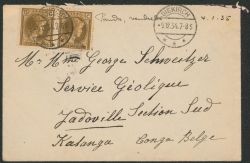 vendredi 4.1.35
-5.12.34.7-8 S
Mr Mme George Schweitzer
Service Géologique
Jadoville Section Sud
Katanga Congo Belge